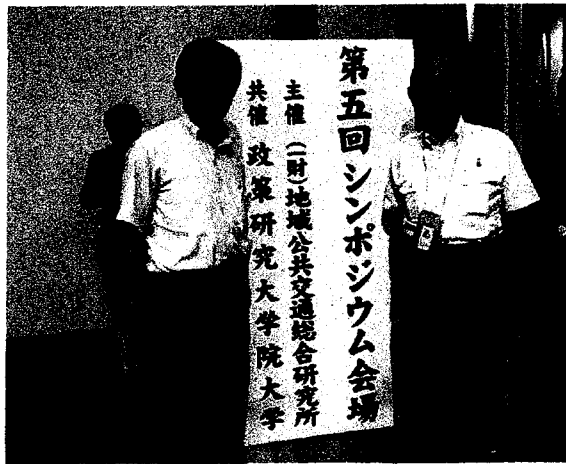 第五回シンポジウム会場
主催 (一財)地域公共交通総合研究所
共催 政策研究大学院大学